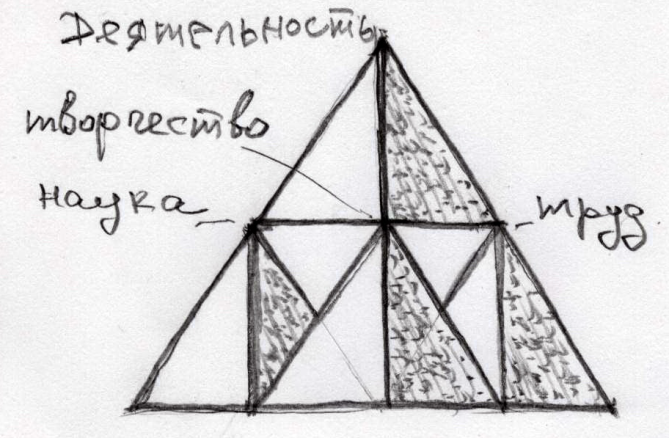 Деятельность
творчество
наука
труд